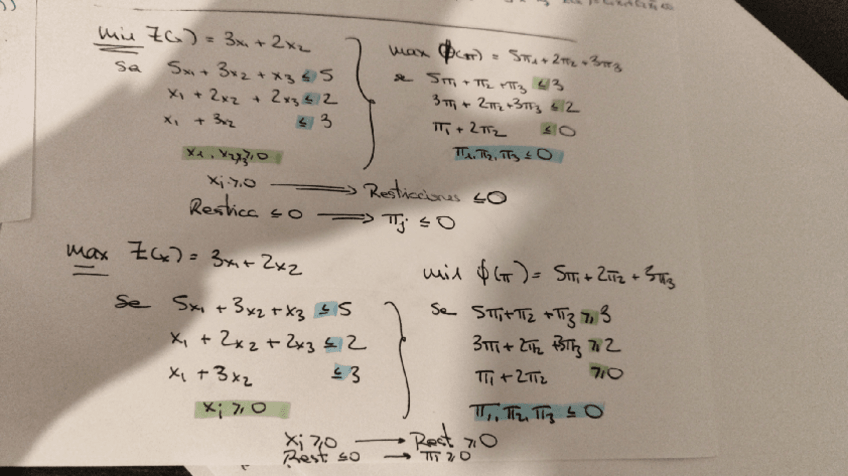 min Z(x) = 3x₁ + 2x₂
Sa 5x₁ + 3x₂ + x₃ ≤ 5
x₁ + 2x₂ + 2x₃ ≤ 2
x₁ + 3x₂ ≤ 3
x₁, x₂, x₃ ≥ 0
max ϕ(π) = 5π₁ + 2π₂ + 3π₃
se 5π₁ + π₂ + π₃ ≤ 3
3π₁ + 2π₂ + 3π₃ ≤ 2
π₁ + 2π₂ ≤ 0
π₁, π₂, π₃ ≤ 0
xⱼ ≥ 0 ⟹ Restricciones ≤ 0
Restricc ≤ 0 ⟹ πⱼ ≤ 0
max Z(x) = 3x₁ + 2x₂
Se 5x₁ + 3x₂ + x₃ ≤ 5
x₁ + 2x₂ + 2x₃ ≤ 2
x₁ + 3x₂ ≤ 3
xⱼ ≥ 0
min ϕ(π) = 5π₁ + 2π₂ + 3π₃
Se 5π₁ + π₂ + π₃ ≥ 3
3π₁ + 2π₂ + 3π₃ ≥ 2
π₁ + 2π₂ ≥ 0
π₁, π₂, π₃ ≤ 0
xⱼ ≥ 0 ⟶ Rest ≥ 0
Rest ≤ 0 ⟶ πⱼ ≥ 0